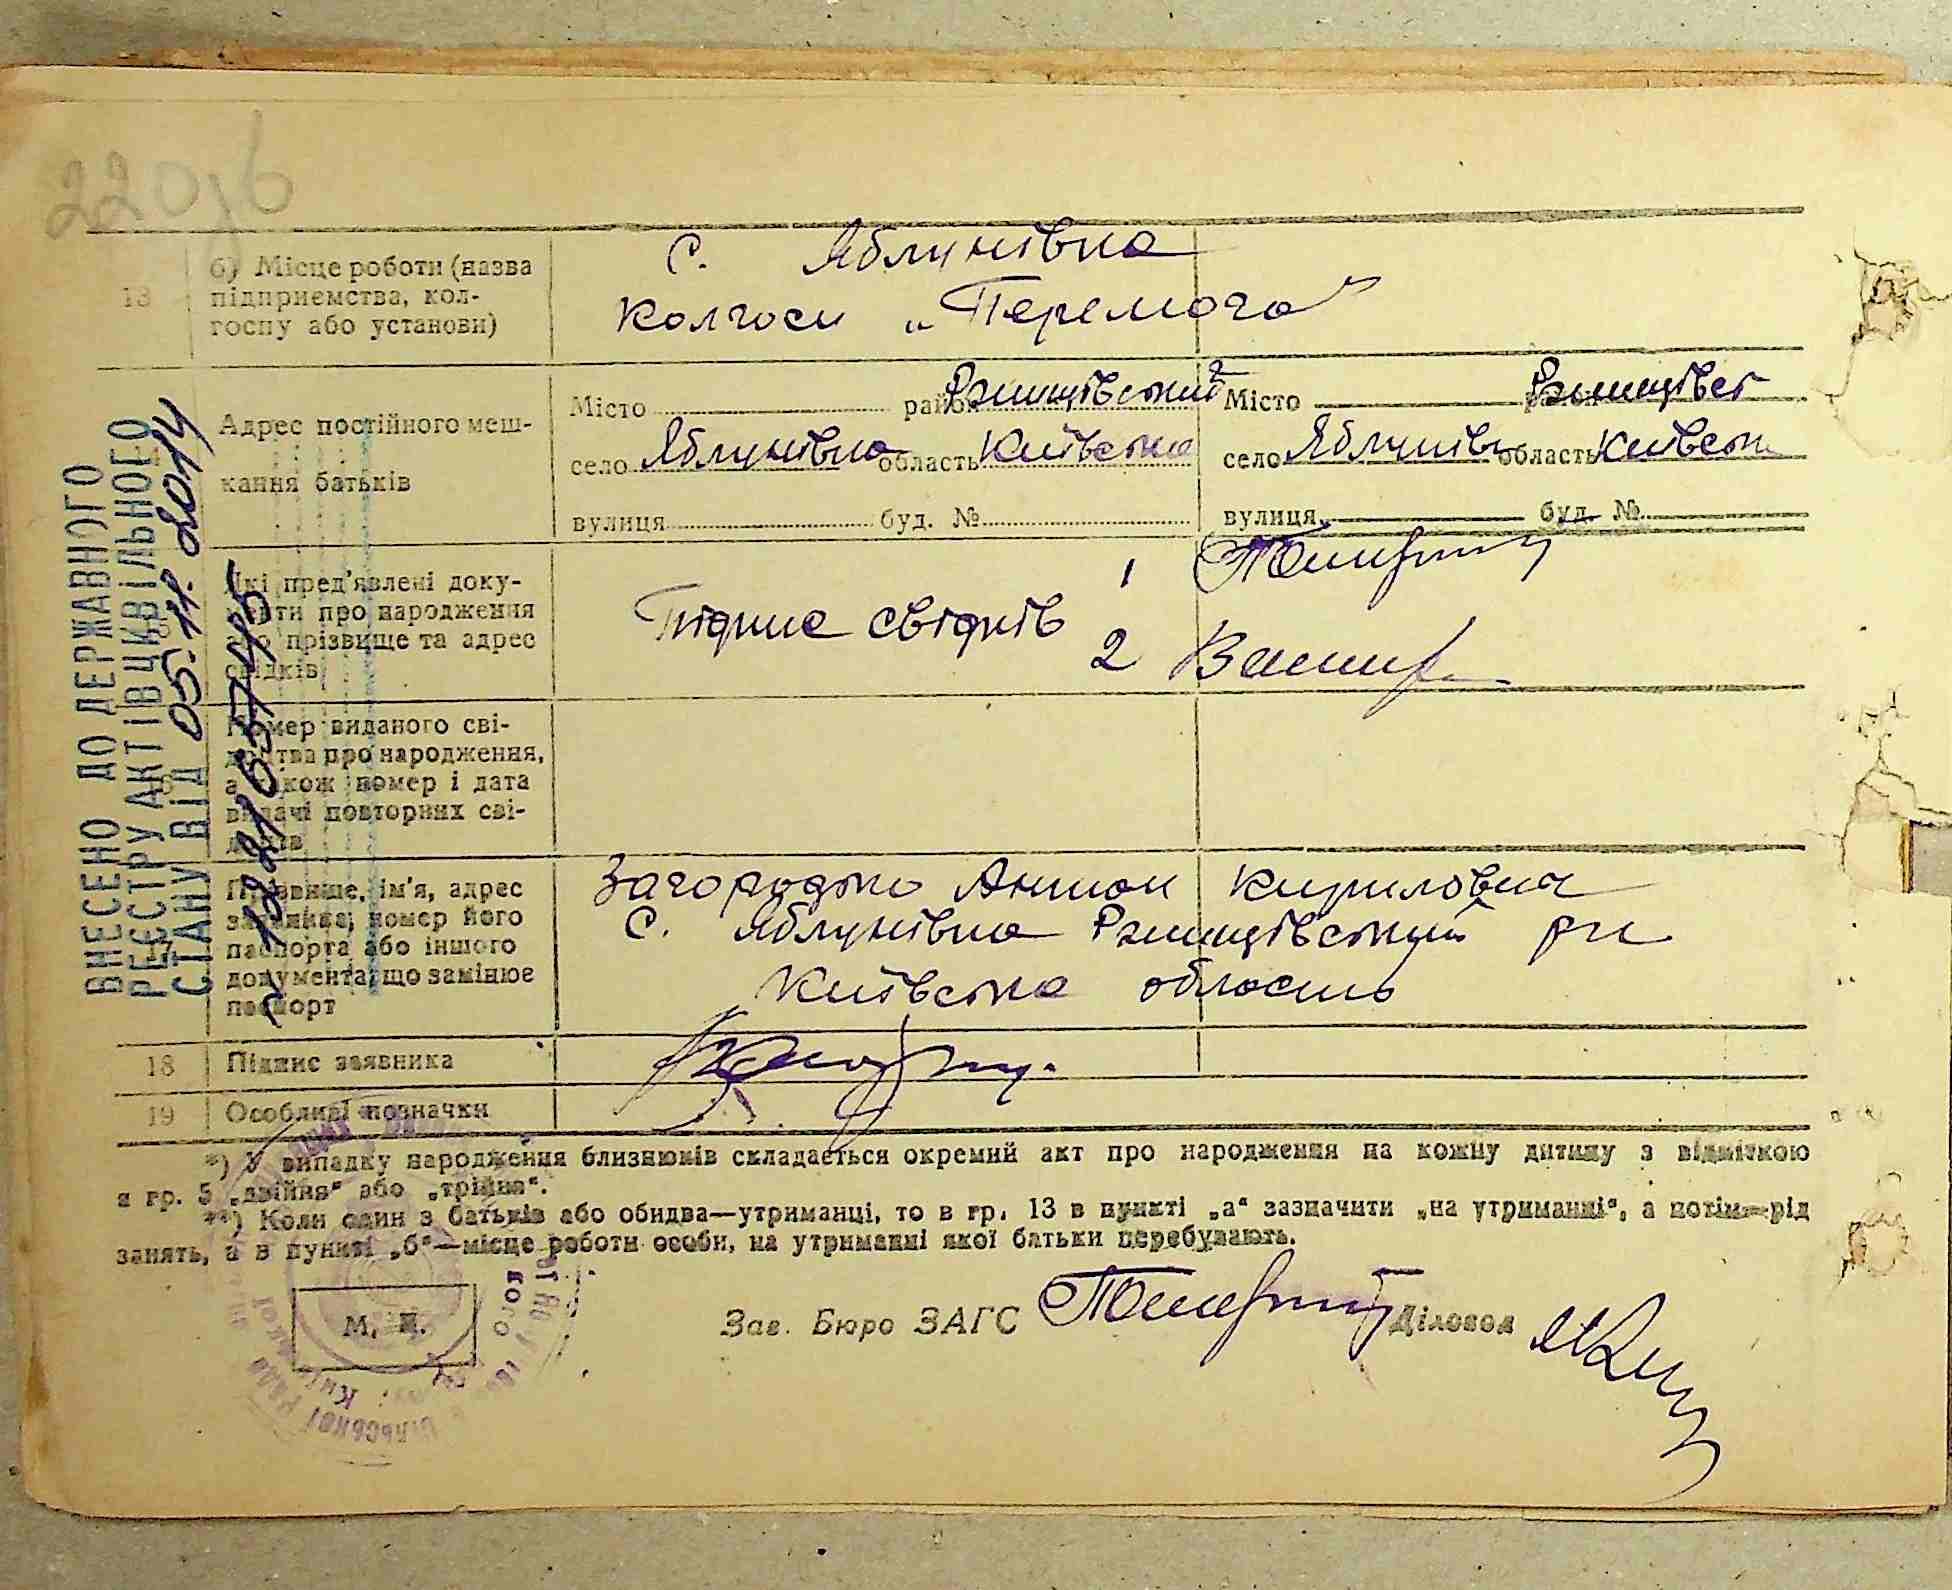 220
13 б) Місце роботи (назва підприємства, кол-госпу або установи)
с. Яблунівка
колгосп „Перемога"
Адрес постійного меш-
кання батьків
Місто район Ржищівський
село Яблунівка область Київська
вулиця буд. №
Місто Ржищівс
село Яблунів область Київськ
вулиця буд. №
Які пред'явлені доку-
менти про народження
або прізвище та адрес
свідків
Підпис свідків 1
2
Номер виданого сві-
доцтва про народження,
а також номер і дата
видачі повторних сві-
доцтв
17 Прізвище, ім'я, адрес
заявника, номер його
паспорта або іншого
документа, що замінює
паспорт
Загородько Антон Кирилович
с. Яблунівка Ржищівський р-н
Київська область
18 Підпис заявника
19 Особливі позначки
*) У випадку народження близнюків складається окремий акт про народження на кожну дитину з відміткою
в гр. 5 „двійня" або „трійня".
**) Коли один з батьків або обидва—утриманці, то в гр. 13 в пункті „а" зазначити „на утриманні", а потім—рід
занять, а в пункті „б"—місце роботи особи, на утриманні якої батьки перебувають.
М. П.
Зав. Бюро ЗАГС Діловод
ВНЕСЕНО ДО ДЕРЖАВНОГО
РЕЄСТРУ АКТІВ ЦИВІЛЬНОГО
СТАНУ ВІД 05.11.2014